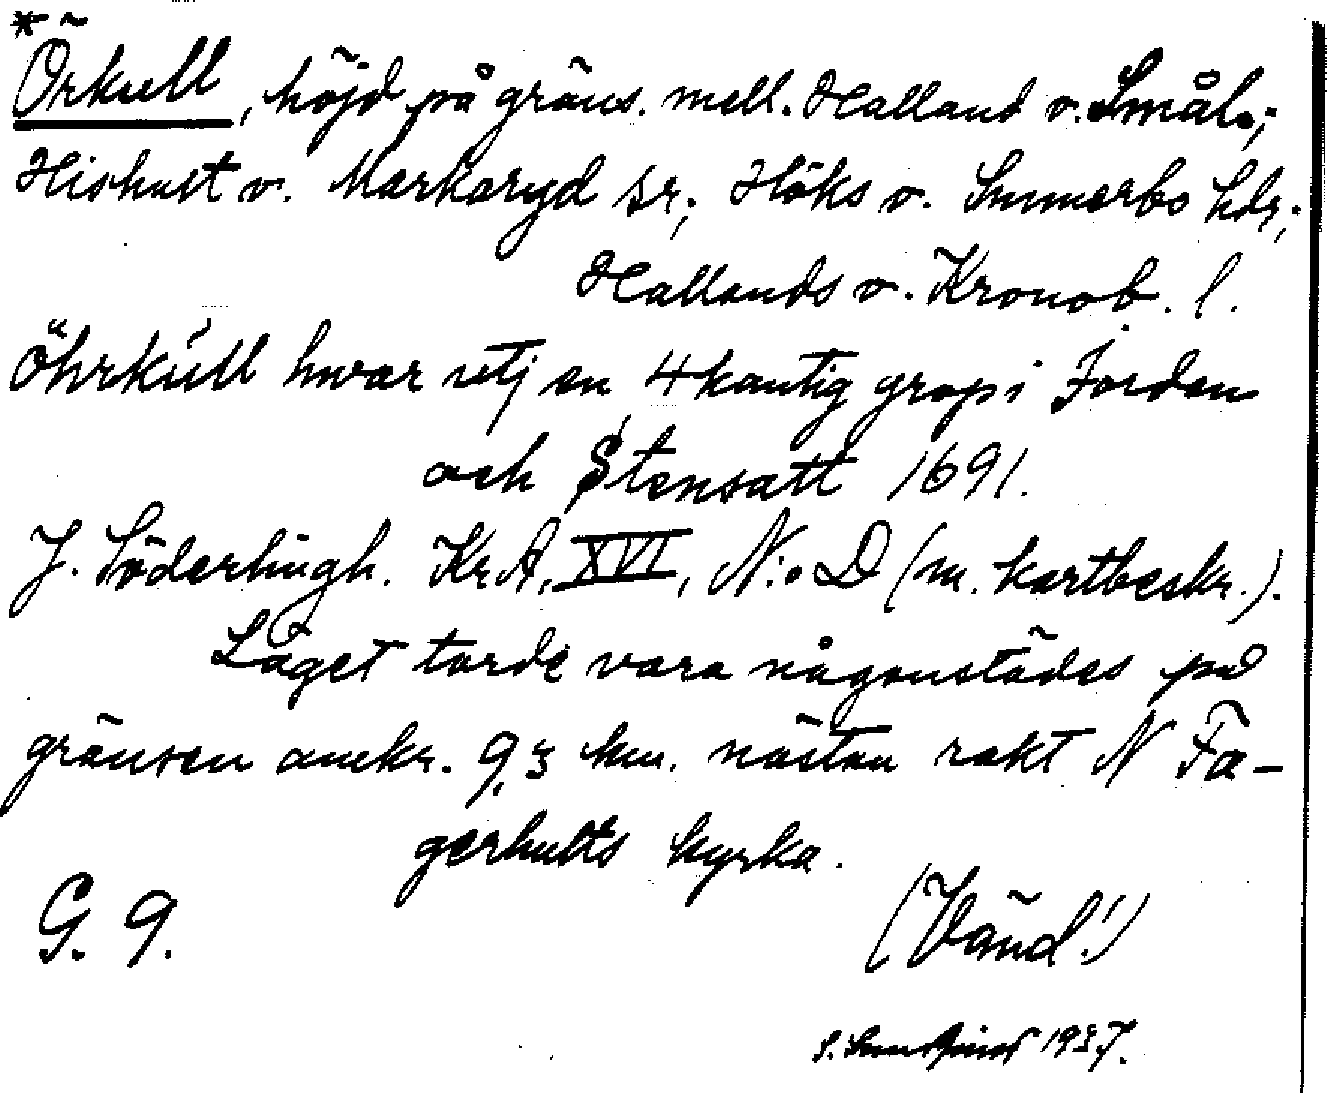 * Örkull, höjd på gräns. mell. Halland o. Smål.;
Hishult o. Markaryd sr; Höks o. Sunnerbo hdr;
Hallands o. Kronob. l.
öhrkúll hwar utj en 4kantig grop i Jorden
och Stensatt 1691.
J. Söderlingh. Kr.A. XVI, N:o D (m. kartbeskr.).
Läget torde vara någonstädes på
gränsen omkr. 9,3 km. nästan rakt N Fa-
gerhults kyrka.
G. 9.
(Vänd!)
1937.